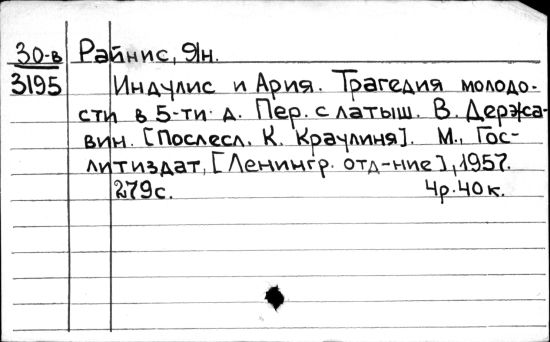 30-в Райнис, Ян.
3195 Индулис и Ария. Трагедия молодо-
сти в 5-ти д. Пер. с латыш. В. Держа-
вин. [Послесл. К. Краулиня]. М., Гос-
литиздат, [Ленингр. отд-ние], 1957.
279с. 4р. 40к.